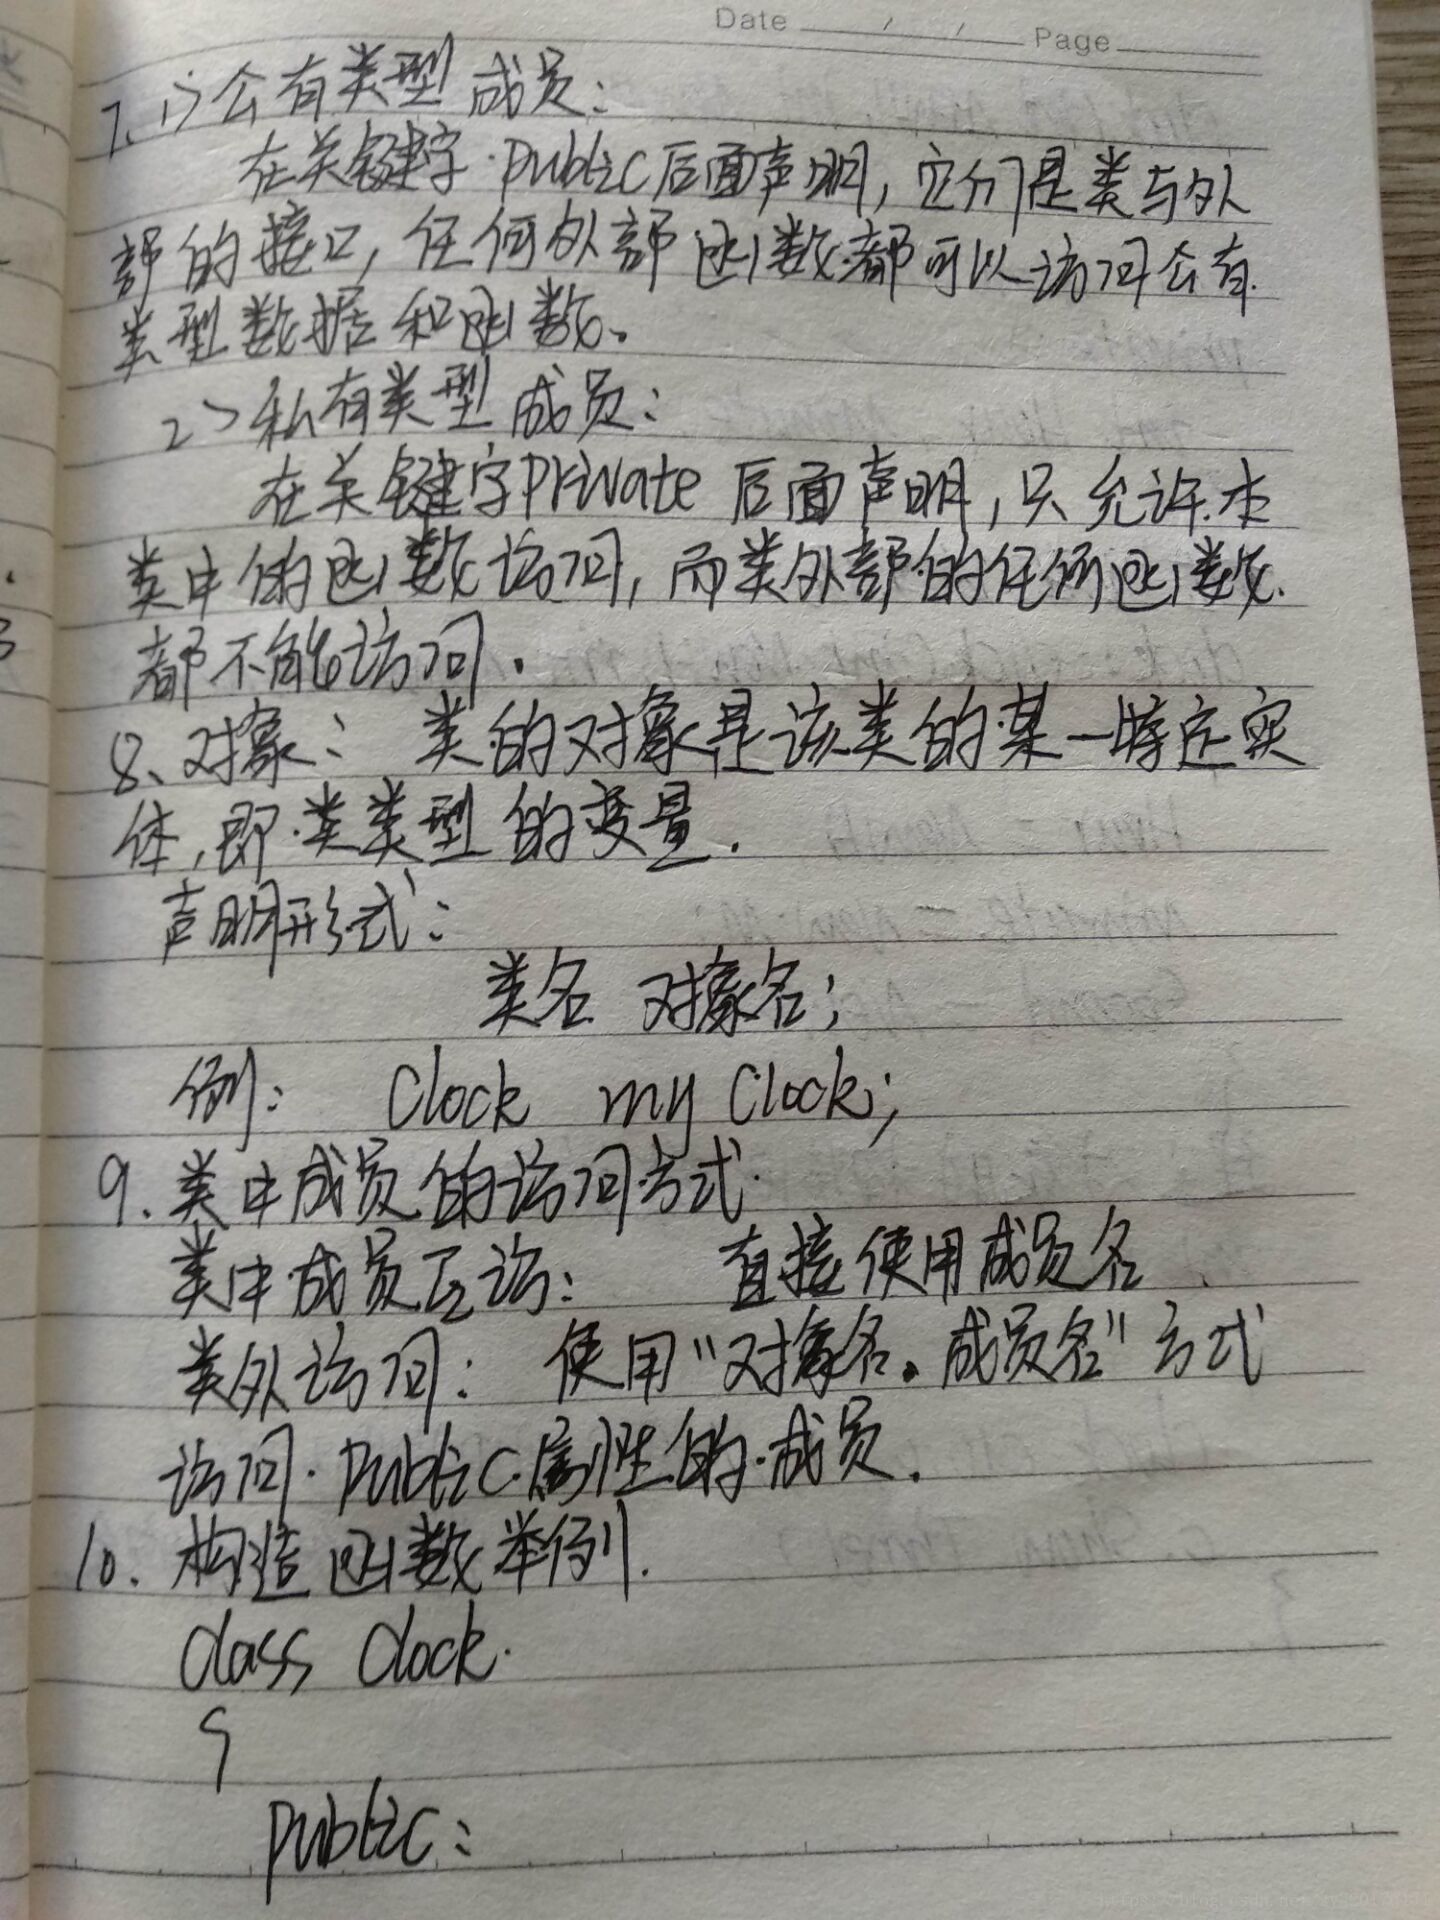 Date / / Page
7. 1> 公有类型成员:
在关键字 public后面声明, 它们是类与外
部的接口, 任何外部函数都可以访问公有
类型数据和函数。
2> 私有类型成员:
在关键字private 后面声明, 只允许本
类中的函数访问, 而类外部的任何函数
都不能访问.
8、对象: 类的对象是该类的某一特定实
体, 即类类型的变量.
声明形式:
类名 对象名;
例: Clock myClock;
9. 类中成员的访问方式
类中成员互访: 直接使用成员名
类外访问: 使用“对象名.成员名”方式
访问 public 属性的成员.
10. 构造函数举例.
class Clock
{
public: